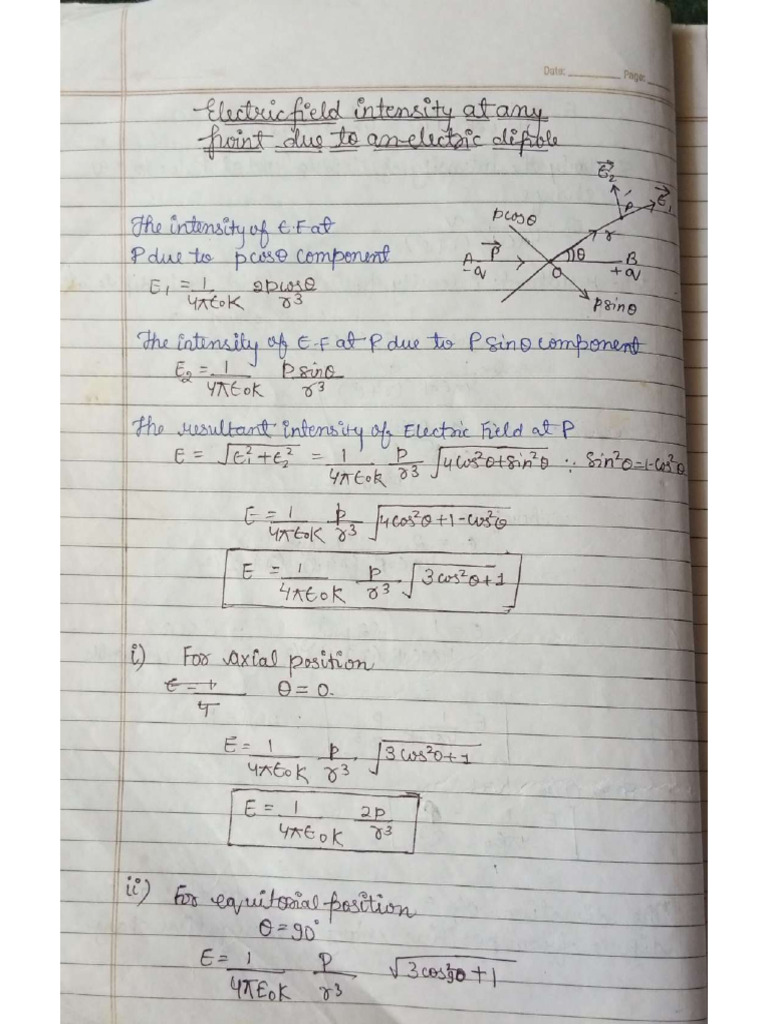 Date: Page:
Electric field intensity at any
point due to an electric dipole
E⃗₂
P E⃗₁
pcosθ
r
The intensity of E.F at
P due to pcosθ component
A P⃗ θ B
-q O +q
E₁ = 1/4πϵ₀K 2pcosθ/r³
psinθ
The intensity of E.F at P due to Psinθ component
E₂ = 1/4πϵ₀K Psinθ/r³
The resultant intensity of Electric Field at P
E = √E₁²+E₂² = 1/4πϵ₀K P/r³ √4cos²θ+sin²θ ∵ sin²θ=1-cos²θ
E = 1/4πϵ₀K p/r³ √4cos²θ+1-cos²θ
E = 1/4πϵ₀K p/r³ √3cos²θ+1
i) For axial position
θ = 0.
E = 1/4πϵ₀K p/r³ √3cos²0+1
E = 1/4πϵ₀K 2p/r³
ii) For equitorial position
θ = 90°
E = 1/4πϵ₀K P/r³ √3cos²90+1